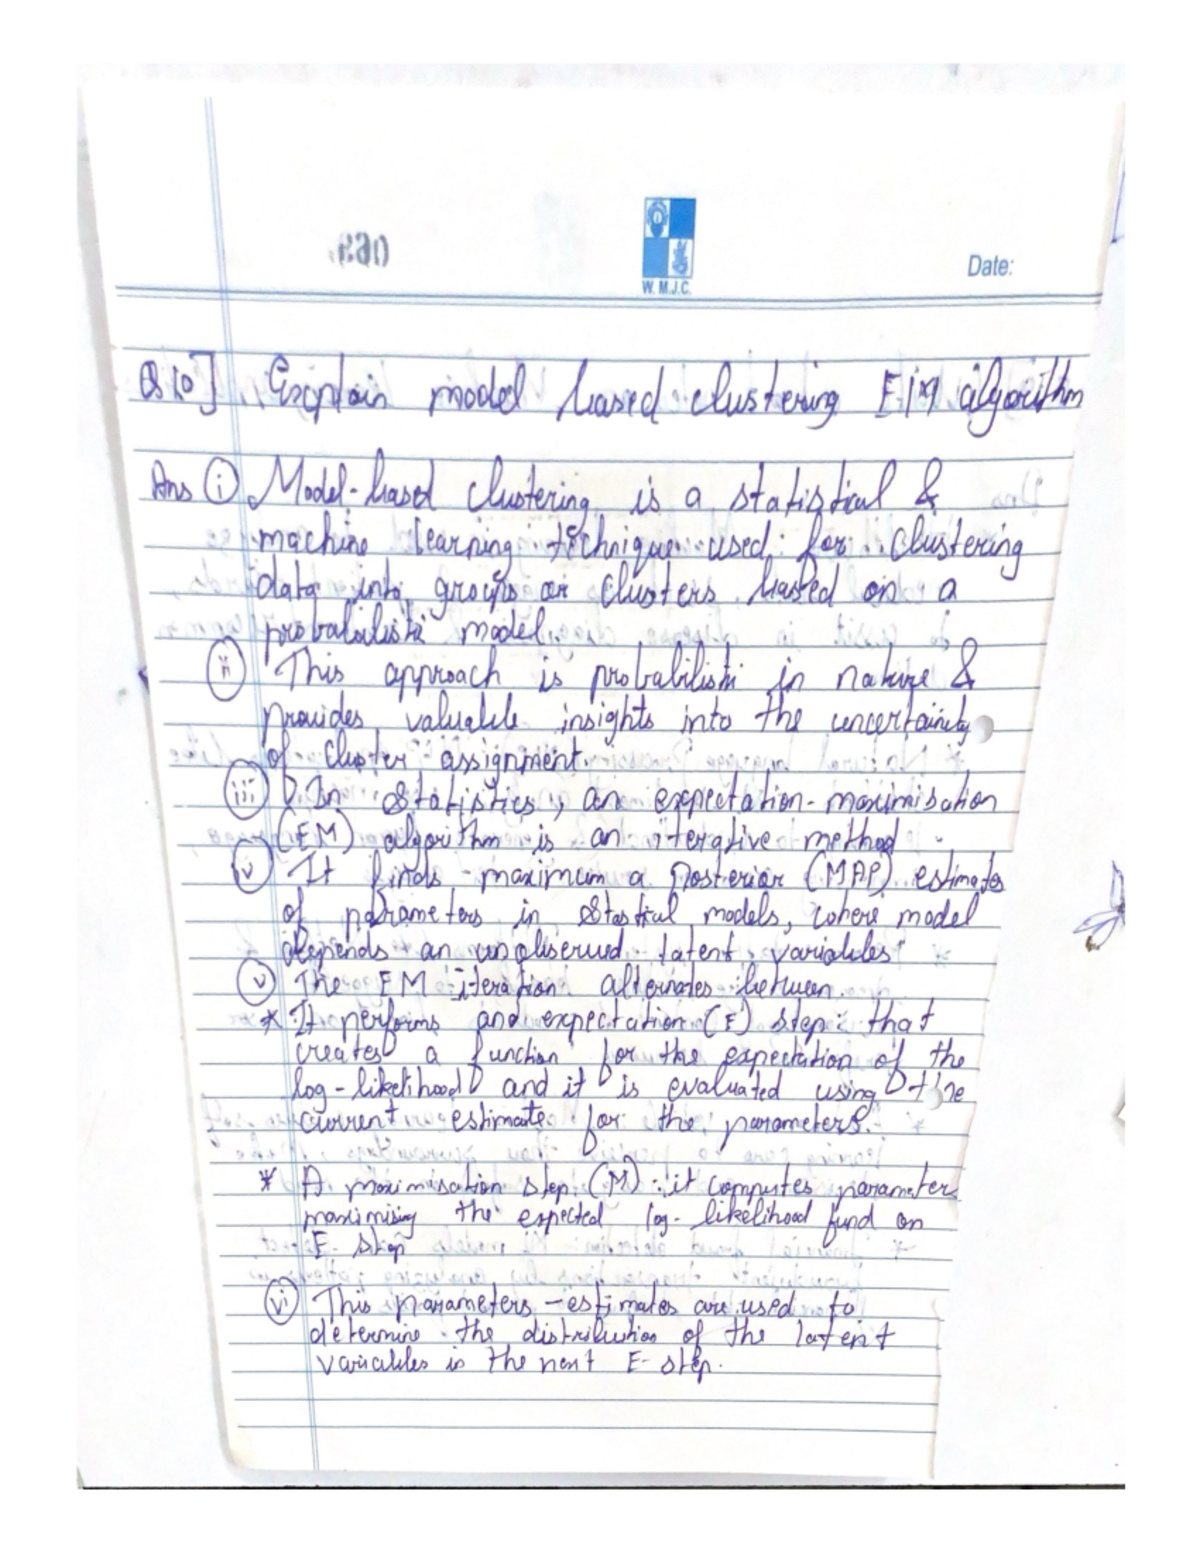 W. M.J.C.
Date:
Q.10] Explain model based clustering E/M algorithm
Ans (i) Model-based clustering is a statistical &
machine learning technique used for clustering
data into groups or clusters based on a
probabalisti model.
(ii) This approach is probabilisti in nature &
provides valuable insights into the uncertainity
of cluster assignment.
(iii) In Statistics, an expectation-maximisation
(EM) algorithm is an iterative method
(iv) It finds maximum a posterior (MAP) estimates
of parameters in Stastical models, where model
depends an unobserved latent variables
(v) The EM iteration alternates between.
* It performs and expectation (E) step: that
creates a function for the expectation of the
log-likelihood and it is evaluated using the
current estimate for the parameters.
* A maximisation step (M): it computes parameter
maximising the expected log-likelihood fund on
E-step
(vi) This parameters-estimates are used to
determine the distribution of the latent
variables in the next E-step.